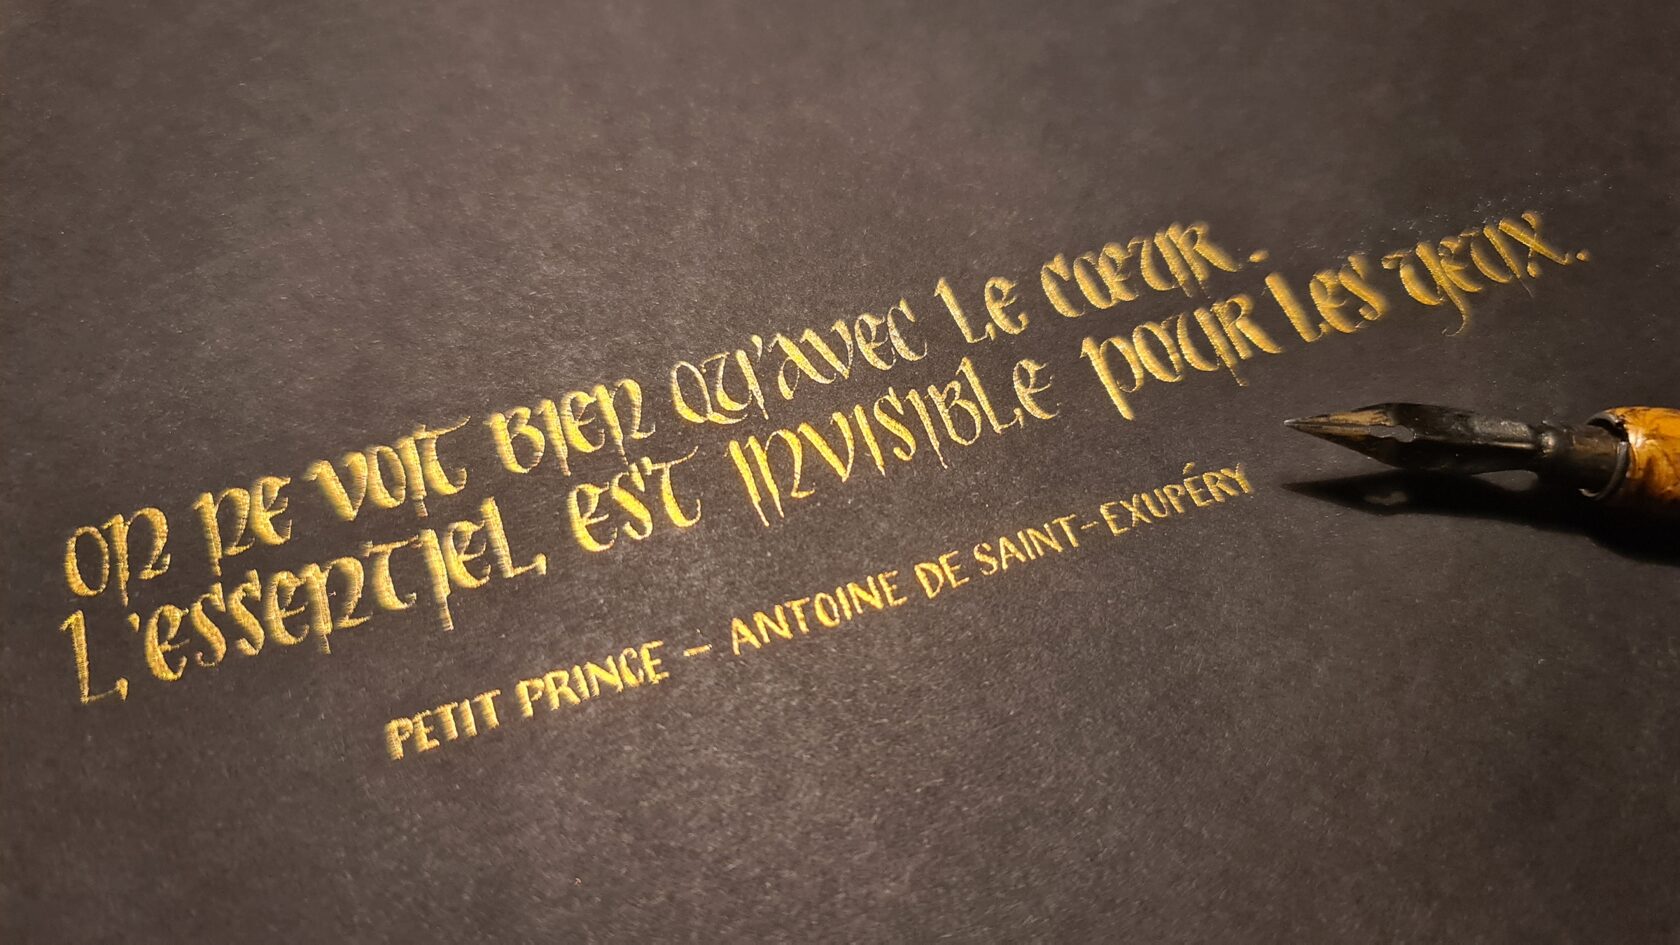 ON NE VOIT BIEN QU'AVEC LE CŒUR.
L'ESSENTIEL EST INVISIBLE POUR LES YEUX.
PETIT PRINCE – ANTOINE DE SAINT-EXUPÉRY